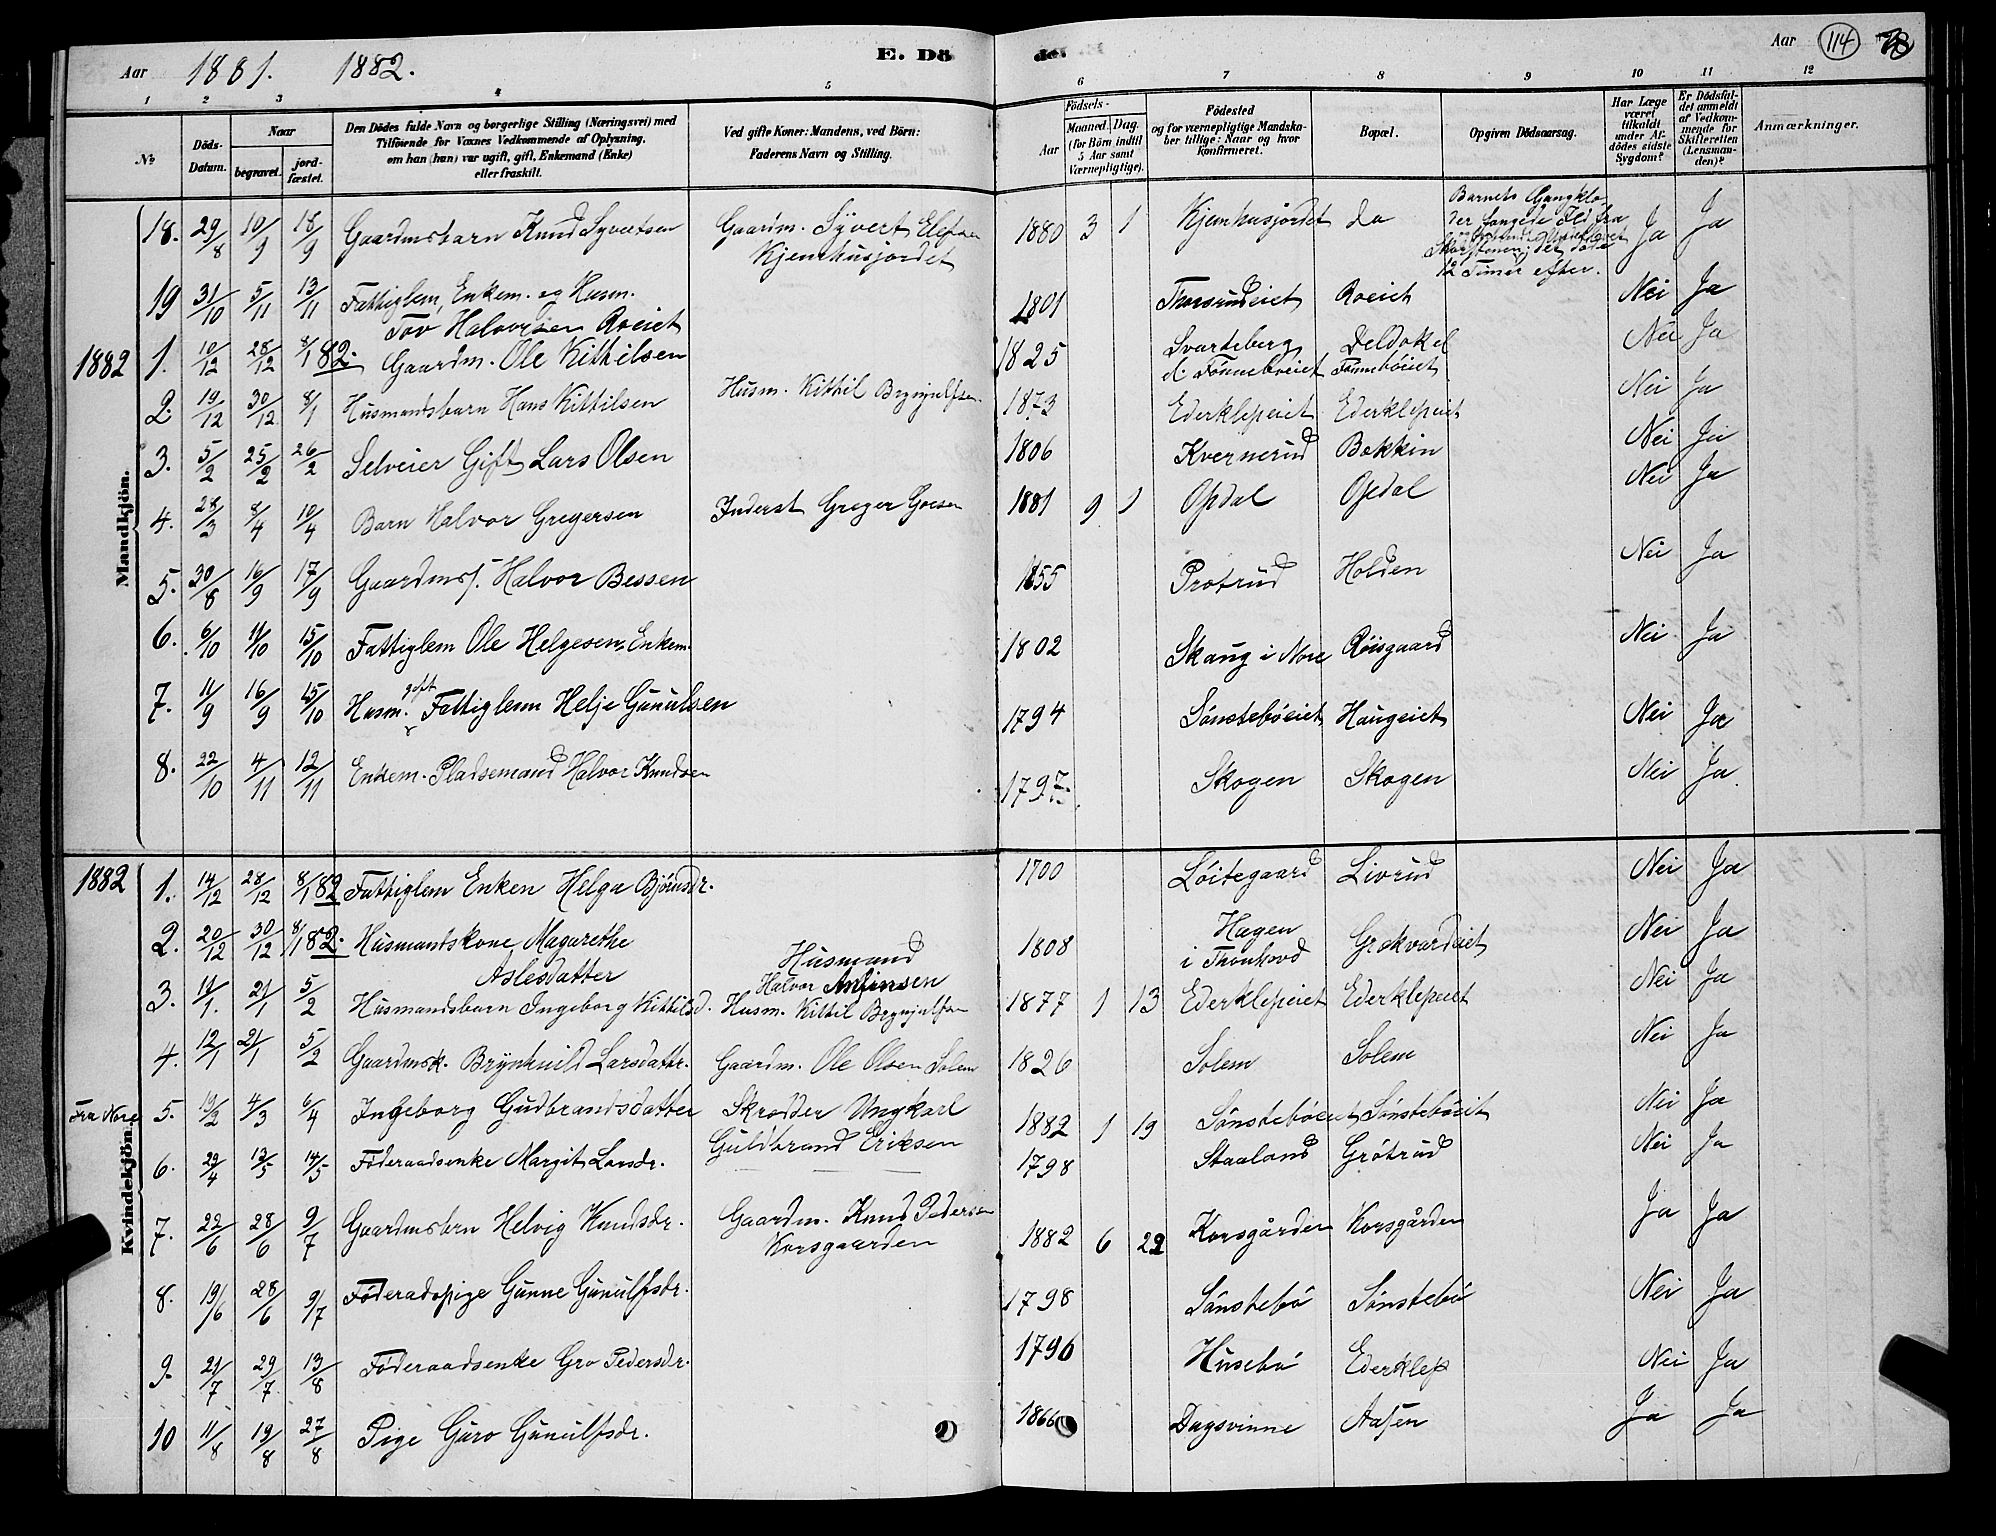 Aar 1881. 1882. E. Döde. Aar 114
1 2 3 4 5 6 7 8 9 10 11 12
№ Döds-Datum. Naar begravet. jordfæstet. Den Dödes fulde Navn og borgerlige Stilling (Næringsvei) med Tilföiende for Voxnes Vedkommende af Oplysning, om han (hun) var ugift, gift, Enkemand (Enke) eller fraskilt. Ved gifte Koner: Mandens, ved Börn: Faderens Navn og Stilling. Födsels- Aar Maaned. Dag. (for Börn indtil 5 Aar samt Værnepligtige). Födested og for værnepligtige Mandskaber tillige: Naar og hvor konfirmeret. Bopæl. Opgiven Dödsaarsag. Har Læge været tilkaldt under Afdödes sidste Sygdom? Er Dödsfaldet anmeldt af Vedkommende for Skifteretten (Lensmanden)? Anmærkninger.
Mandkjön.
18. 29/8 10/9 18/9 Gaardmsbarn Knud Syvertsen Gaardm. Syvert Elefsen Kjemhusjordet 1880 3 1 Kjemhusjordet do Barnets Gangklæder fangede Ild fra Skorstenen; det døde 12 Timer efter. Ja Ja
19 31/10 5/11 13/11 Fattiglem, Enkem. og Husm. 1801 Thorsrudeiet Roeiet Nei Ja
Tov Halvorsen Roeiet
1882 1. 10/12 28/12 8/1 82. Gaardm. Ole Kittilsen 1825 Svarteberg Deldokel Nei Ja
el. Tønneboeiet Tønnebøeiet
2. 19/12 30/12 8/1 Husmandsbarn Hans Kittilsen Husm. Kittil Brynjulfsen 1873 Ederklepeiet Ederklepeiet Nei Ja
3. 5/2 25/2 26/2 Selveier Gift Lars Olsen 1806 Kvernerud Bekkin Nei Ja
4. 28/3 8/4 10/4 Barn Halvor Gregersen Inderst Greger Goesen 1881 9 1 Opdal Opdal Nei Ja
5. 30/8 16/9 17/9 Gaardmss. Halvor Bessen 1855 Protrud Holden Nei Ja
6. 6/10 11/10 15/10 Fattiglem Ole Helgesen, Enkem. 1802 Skaug i Nore Røisgaard Nei Ja
7. 11/9 16/9 15/10 Husm. gift Fattiglem Helje Gunulsen 1794 Sønstebøeiet Haugeiet Nei Ja
8. 22/10 4/11 12/11 Enkem. Pladsemand Halvor Knudsen 1797 Skogen Skogen Nei Ja.
Kvindekjön.
1882 1. 14/12 28/12 8/1 82 Fattiglem Enken Helga Bjørnsdr. 1700 Løitegaard Livrud Nei Ja
2. 20/12 30/12 8/1 82. Husmandskone Magarethe Aslesdatter Husmand Halvor Anfinsen 1808 Hagen i Thunhovd Grøkvardeiet Nei Ja
3. 11/1. 21/1 5/2 Husmandsbarn Ingeborg Kittilsd. Husm. Kittil Brynjulfsen 1877 1 13 Ederklepeiet Ederklepeiet Nei Ja
4. 12/1 21/1 5/2 Gaardmsk. Brynhuild Larsdattr. Gaardm. Ole Olsen Solem 1826 Solem Solem Nei Ja
Fra Nore 5. 19/2 4/3 6/4 Ingeborg Gudbrandsdatter Skrædder Ungkarl Guldbrand Eriksen 1882 1 19 Sønstebøeiet Sønstebøeiet Nei Ja
6. 29/4 13/5 14/5 Føderaadsenke Margit Larsdr. 1798 Staaland Grøtrud Nei Ja
7. 22/6 28/6 9/7 Gaardmsbrn Helvig Knudsdr. Gaardm. Knud Pedersen Korsgaarden 1882 6 22 Korsgården Korsgården Ja Ja
8. 19/6 28/6 9/7 Føderadspige Gunne Gunulfsdr. 1798 Sønstebø Sønstebø Nei Ja
9. 21/7 29/7 13/8 Føderaadsenke Gro Pedersdr. 1796 Husebø Ederklep Nei Ja
10 11/8 19/8 27/8 Pige Guro Gunulfsdr. 1866 Dagsvinne Aasen Ja Ja